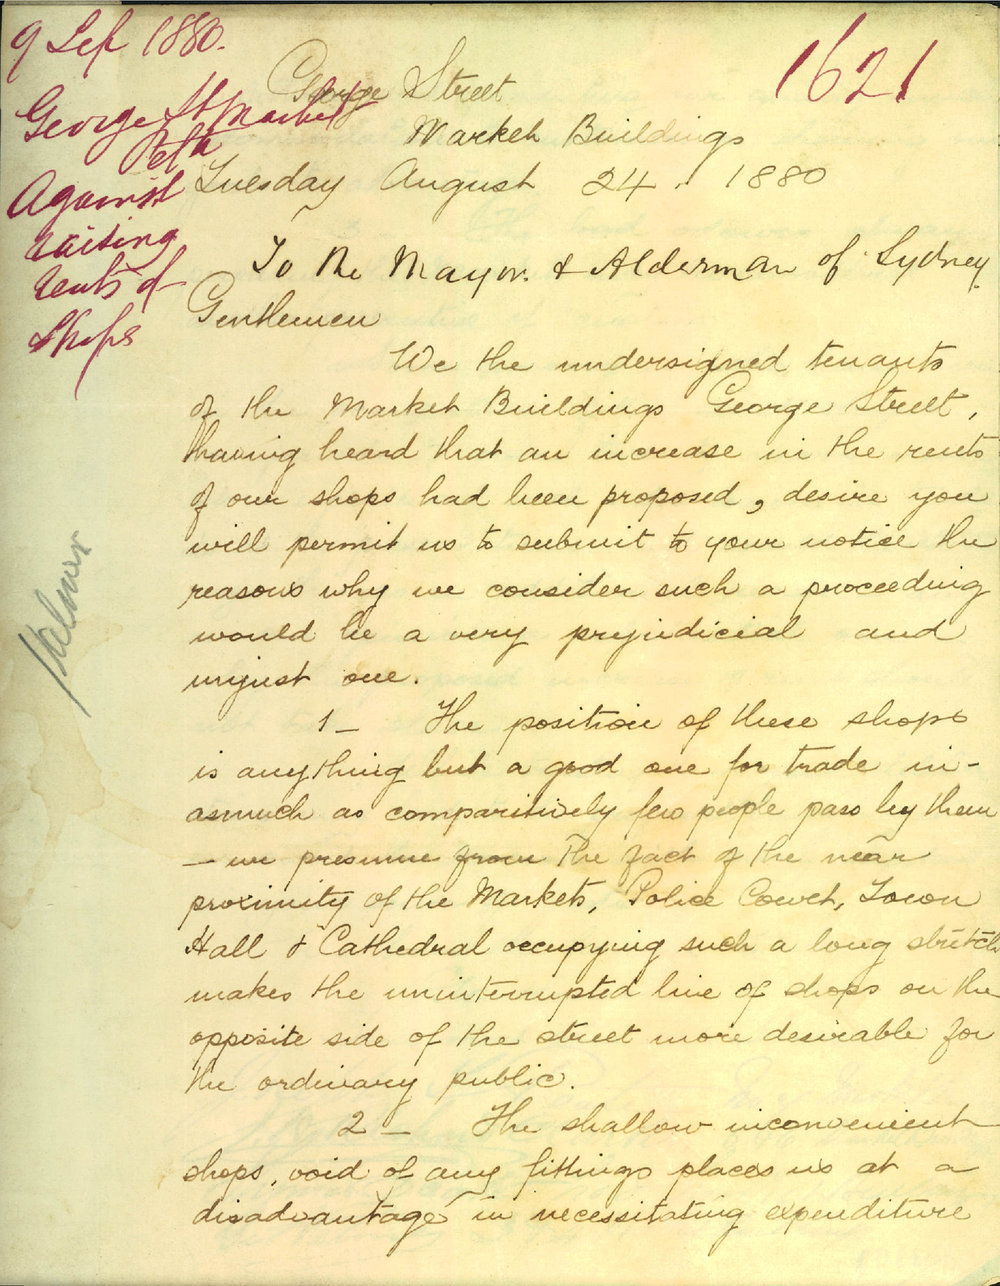 9 Sep 1880.
1621
George St Market
Petn
Against
raising
rents of
Shops
George Street
Market Buildings
Tuesday August 24. 1880
To the Mayor & Alderman of Sydney.
Gentlemen
We the undersigned tenants
of the Market Buildings George Street,
having heard that an increase in the rents
of our shops had been proposed, desire you
will permit us to submit to your notice the
reasons why we consider such a proceeding
would be a very prejudicial and
unjust one.
1 - The position of these shops
is anything but a good one for trade in-
asmuch as comparitively few people pass by them
- we presume from the fact of the near
proximity of the Markets, Police Court, Town
Hall & Cathedral occupying such a long stretch
makes the uninterrupted line of shops on the
opposite side of the street more desirable for
the ordinary public.
2 - The shallow inconvenient
shops, void of any fittings places us at a
disadvantage in necessitating expenditure